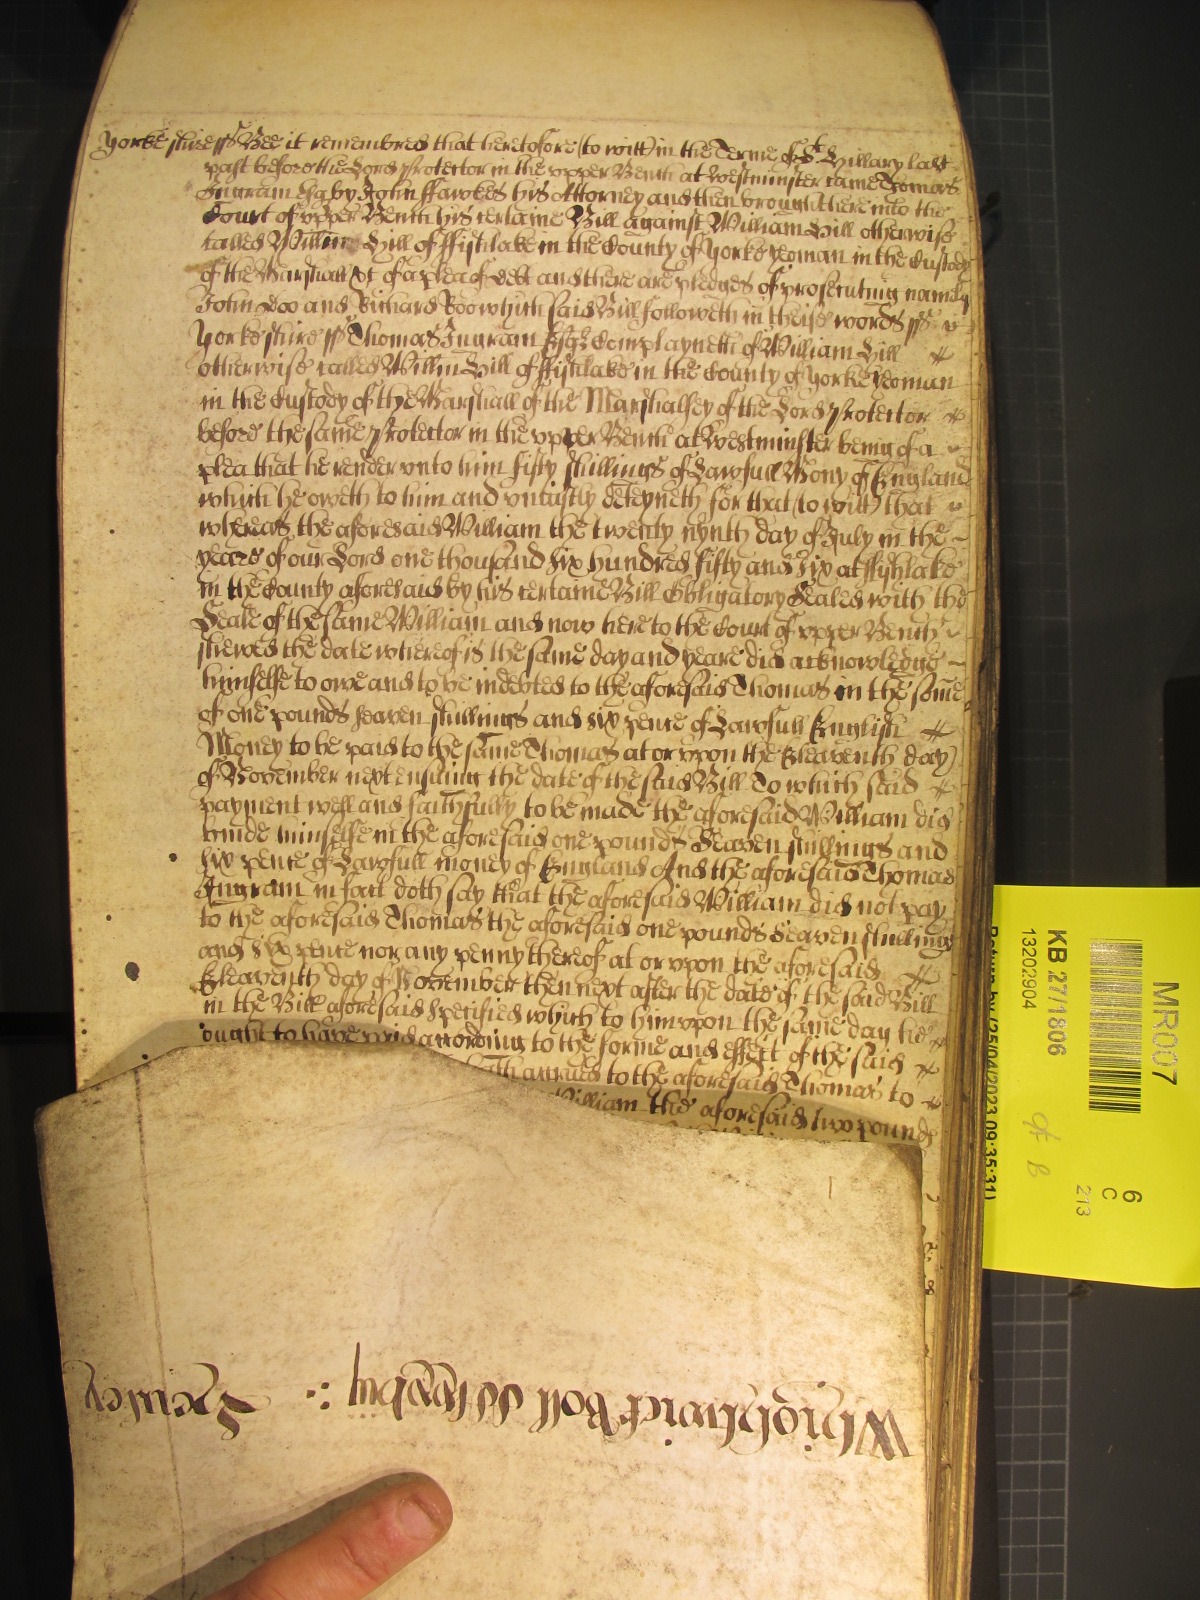 Yorkeshire ss Bee it remembred that heretofore (to witt) in the Terme of St. Hillary last
past before the Lord Protector in the upper Bench at Westminster came Thomas
Ingram Esqr by John ffawkes his Attorney and then brought here into the
Court of upper Bench his certaine Bill against William Hill otherwise
called Willm Hill of ffishlake in the County of Yorke yeoman in the Custody
of the Marshall &c of a plea of debt and there are pledges of prosecuting namely
John Doo and Richard Roo which said Bill followeth in theise words ss
Yorkeshire ss Thomas Ingram Esqr Complayneth of William Hill
otherwise called Willm Hill of ffishlake in the County of Yorke yeoman
in the Custody of the Marshall of the Marshalsey of the Lord Protector
before the same Protector in the upper Bench at Westminster being of a
plea that he render unto him fifty shillings of Lawfull Mony of England
which he oweth to him and uniustly deteyneth for that (to witt) that
whereas the aforesaid William the twenty nynth day of July in the
yeare of our Lord one thousand six hundred fifty and six at ffishlake
in the County aforesaid by his certaine Bill Obligatory Sealed with the
Seale of the same William and now here to the Court of upper Bench
shewed the date whereof is the same day and yeare did acknowledge
himselfe to owe and to be indebted to the aforesaid Thomas in the some
of one pounds seaven shillings and six pence of Lawfull English
Money to be paid to the same Thomas at or upon the Eleaventh day
of November next ensuing the date of the said Bill To which said
payment well and faithfully to be made the aforesaid William did
binde himselfe in the aforesaid one pounds Seaven shillings and
six pence of Lawfull money of England And the aforesaid Thomas
Ingram in fact doth say that the aforesaid William did not pay
to the aforesaid Thomas the aforesaid one pounds seaven shillings
and six pence nor any penny thereof at or upon the aforesaid
Eleaventh day of November then next after the date of the said Bill
in the Bill aforesaid specified which to him upon the same day he
ought to have paid according to the forme and effect of the said
accrued to the aforesaid Thomas to
William the aforesaid two pounds
Whightwick Roll
MR007
KB 27/1806
13202904
Return by (25/04/2023 09:35:31)
6
C
213